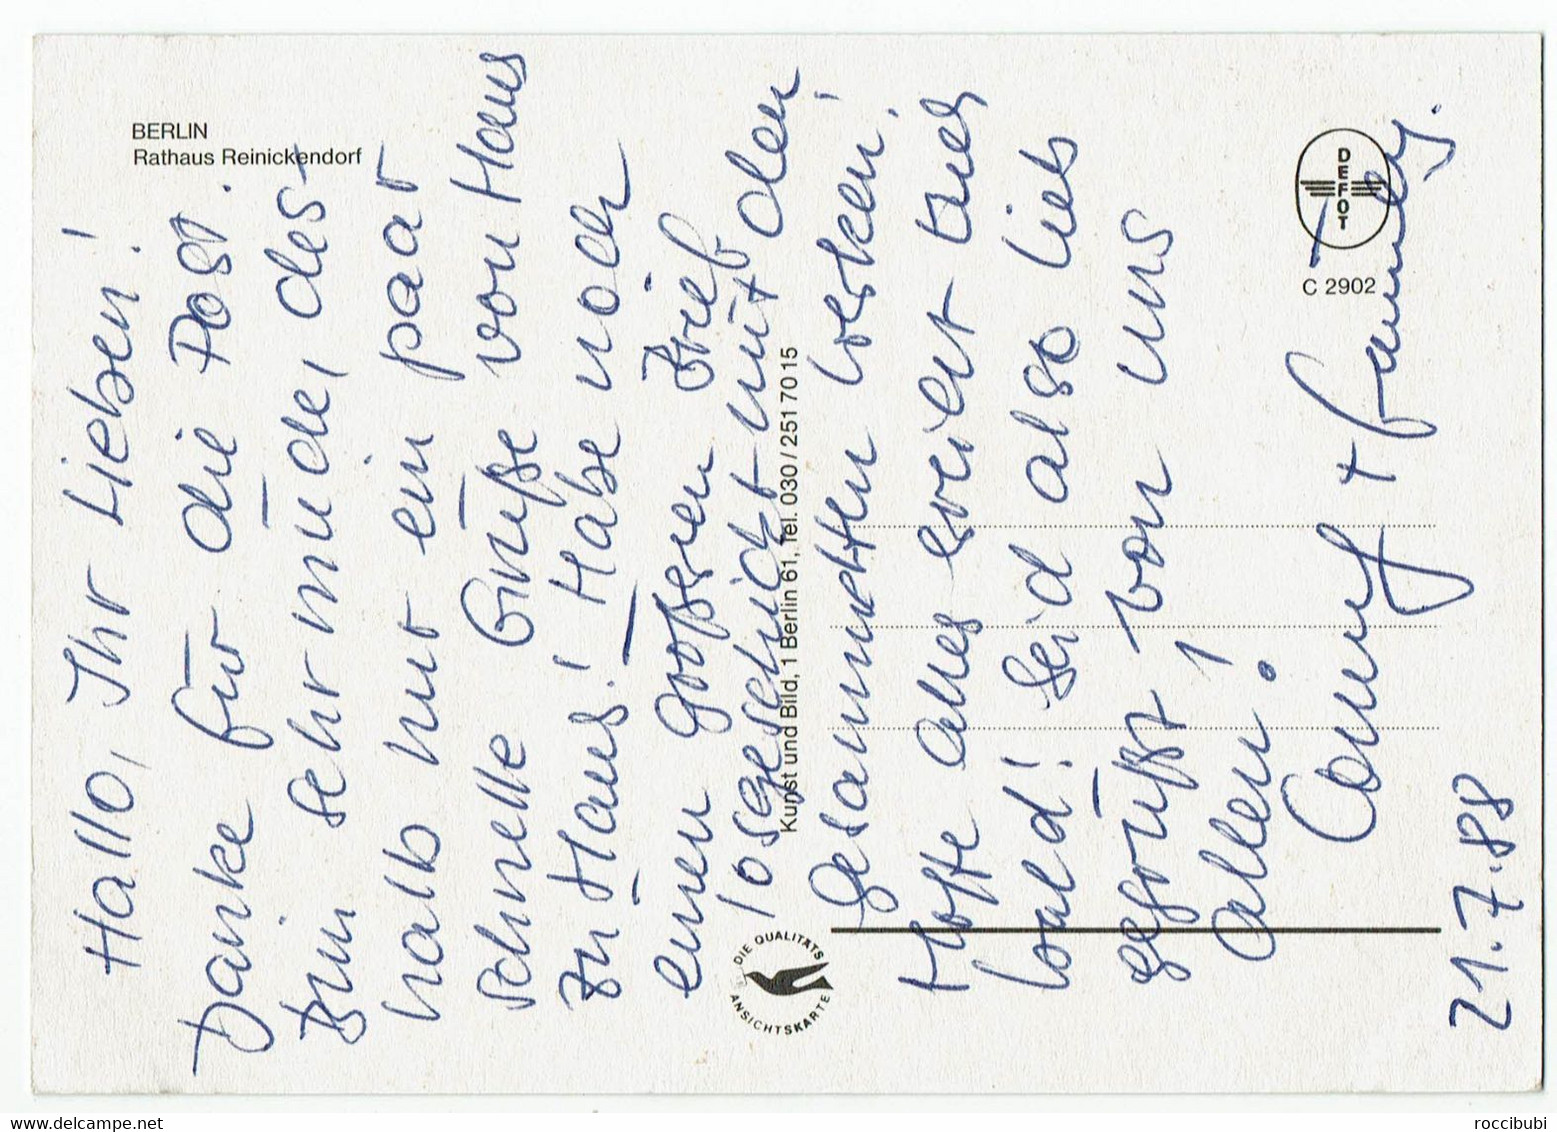 BERLIN
Rathaus Reinickendorf
Hallo, Ihr Lieben!
Danke für die Post.
Bin sehr müde, des-
halb nur ein paar
schnelle Grüße von Haus
zu Haus! Habe noch
einen großen Brief
losgeschickt mit den
gesammelten Werken!
Hoffe alles erreicht Euch
bald! Seid also lieb
gegrüßt von uns
allen!
+ Family.
21.7.88
DIE QUALITÄTS
ANSICHTSKARTE
Kunst und Bild, 1 Berlin 61, Tel. 030/251 70 15
DEFOT
C 2902
roccibubi